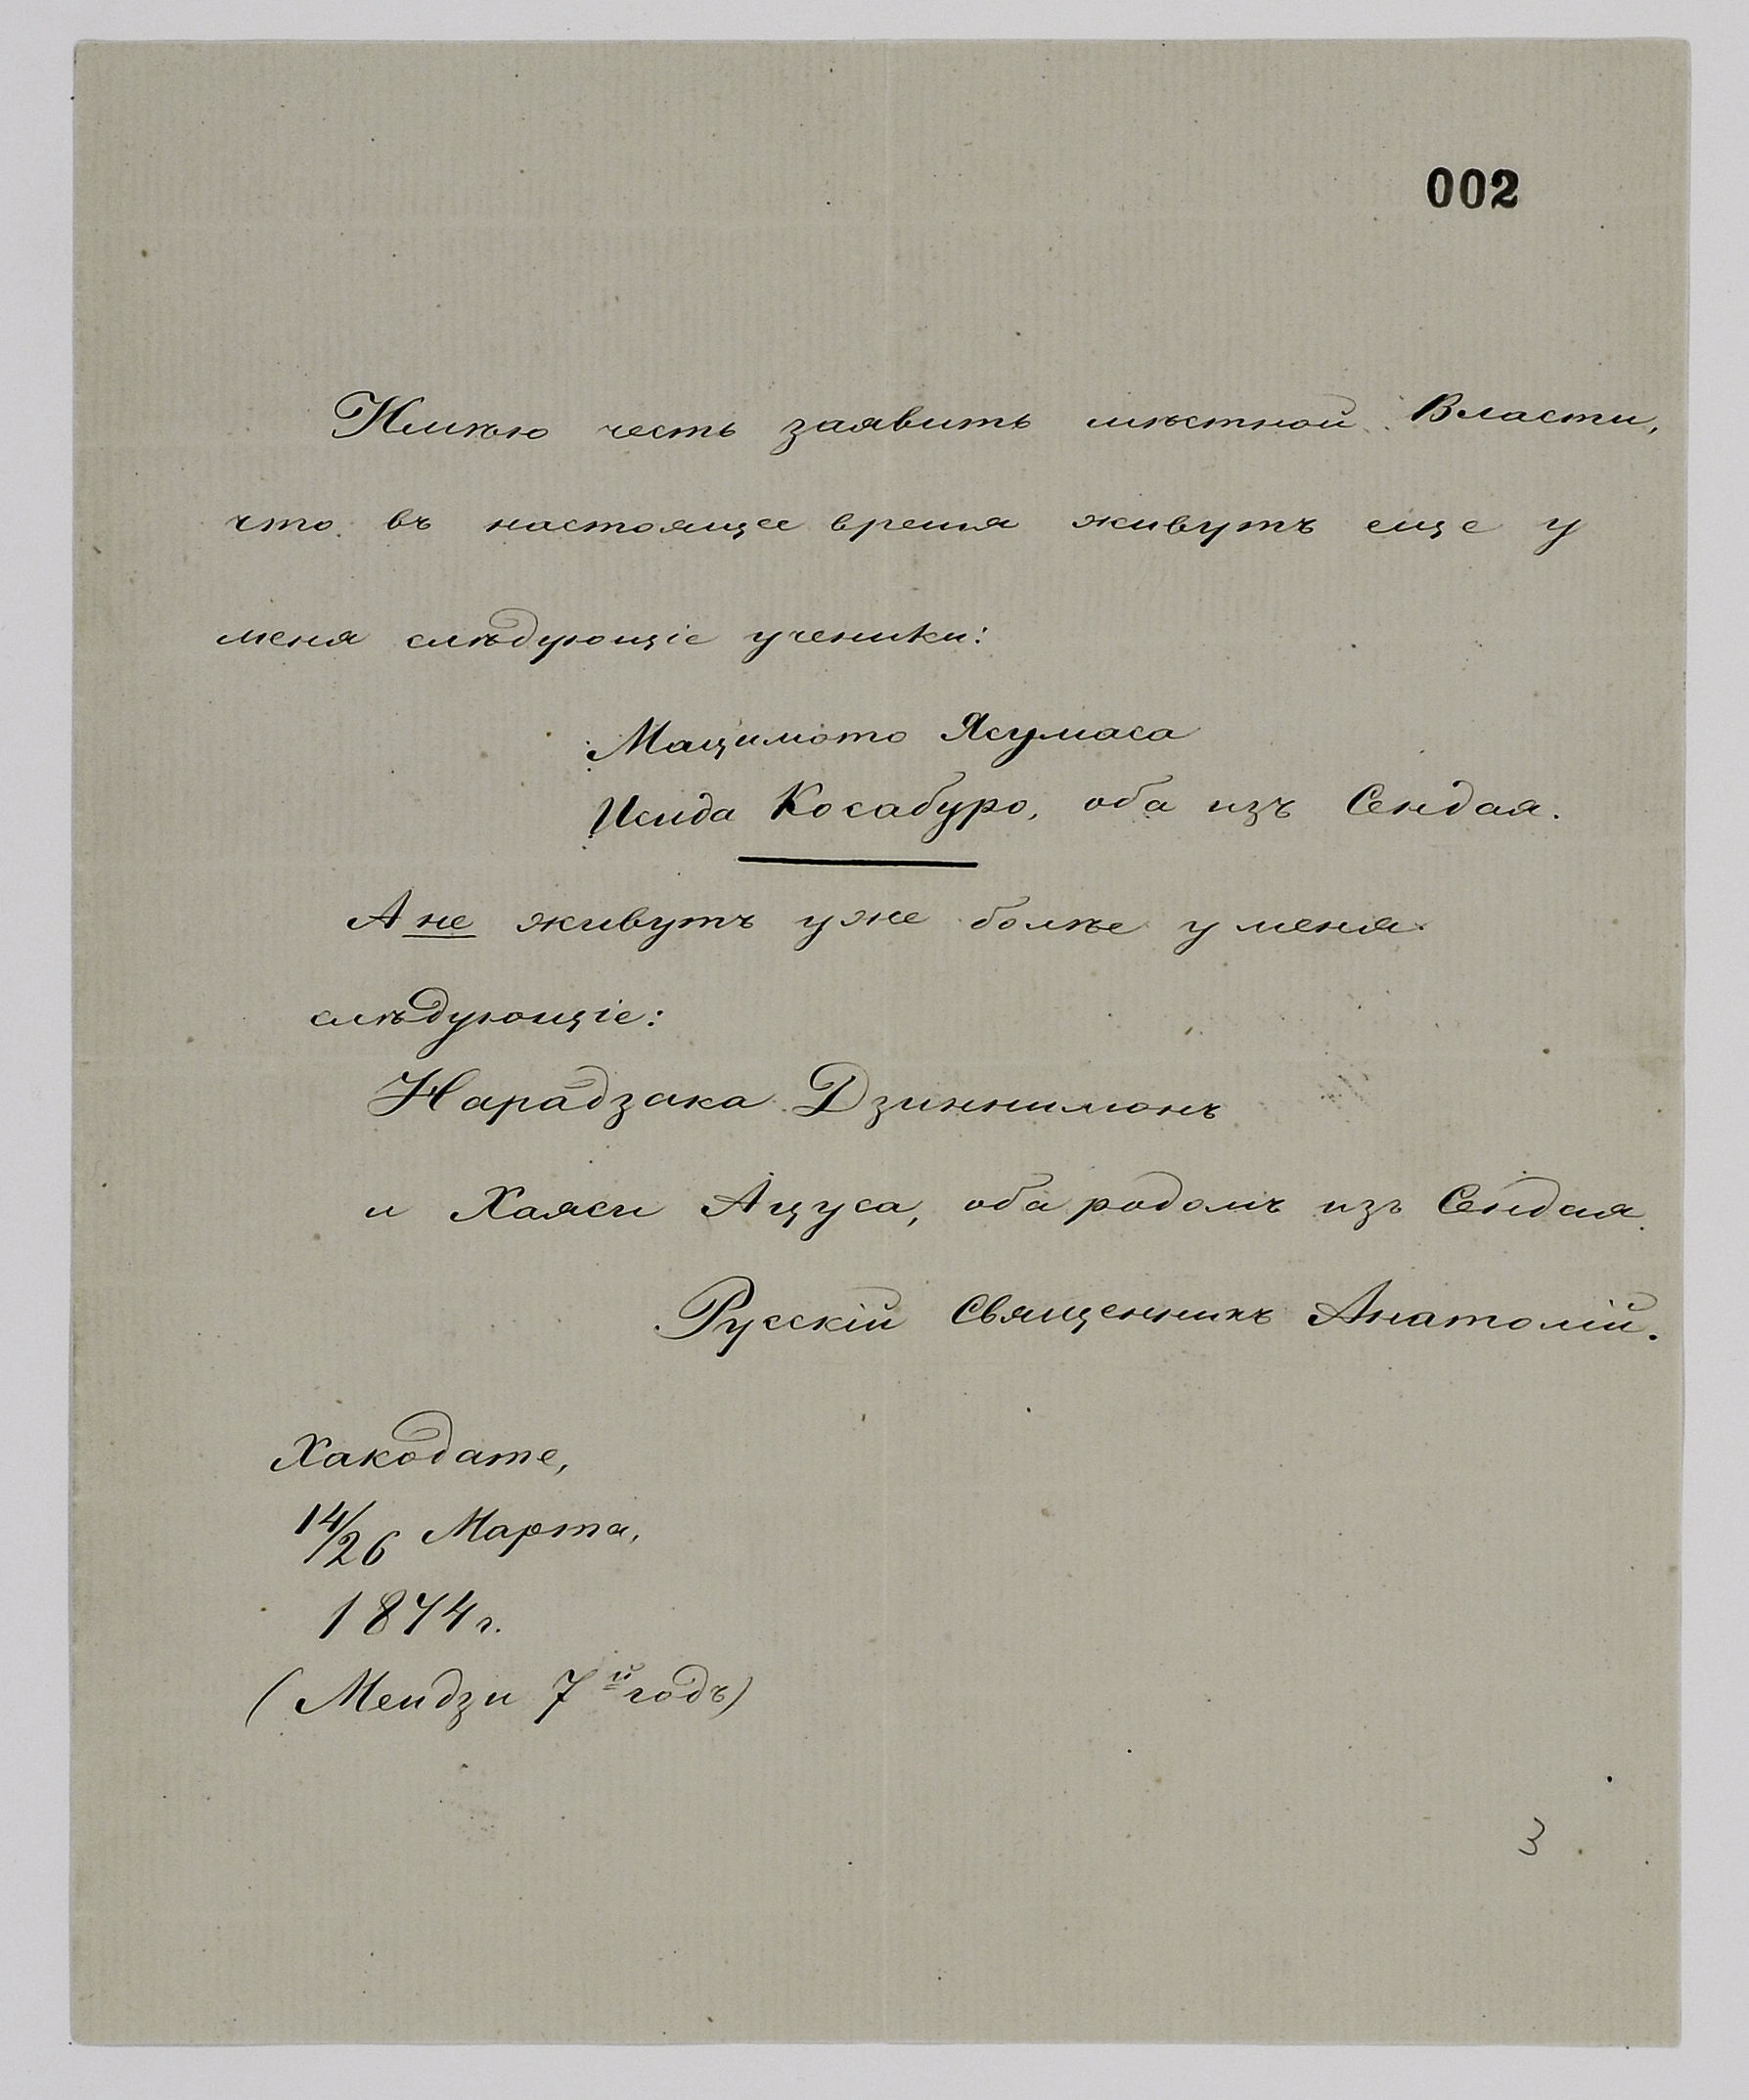 002
Имѣю честь заявить мѣстной Власти,
что въ настоящее время живутъ еще у
меня слѣдующіе ученики:
Мацимото Ясумаса
Исида Косабуро, оба изъ Сендая.
А не живутъ уже болѣе у меня
слѣдующіе:
Нарадзака Дзиннимонъ
и Хаяси Ацуса, оба родомъ изъ Сендая.
Русскій Священникъ Анатолій.
Хакодате,
14/26 Марта,
1874 г.
(Мендзи 7й годъ)
3